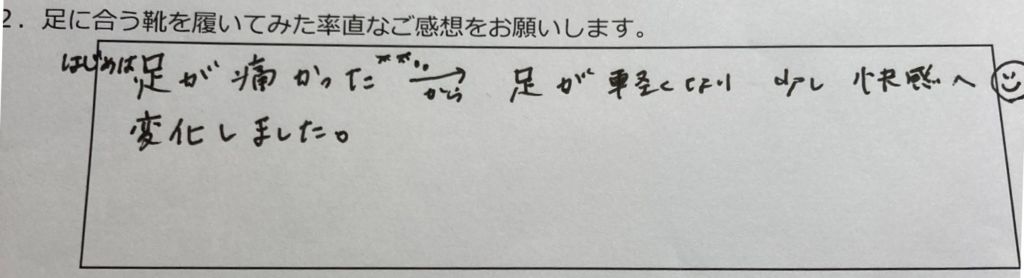 2. 足に合う靴を履いてみた率直なご感想をお願いします。
はじめは足が痛かった → から 足が軽くなり 少し快感へ
変化しました。